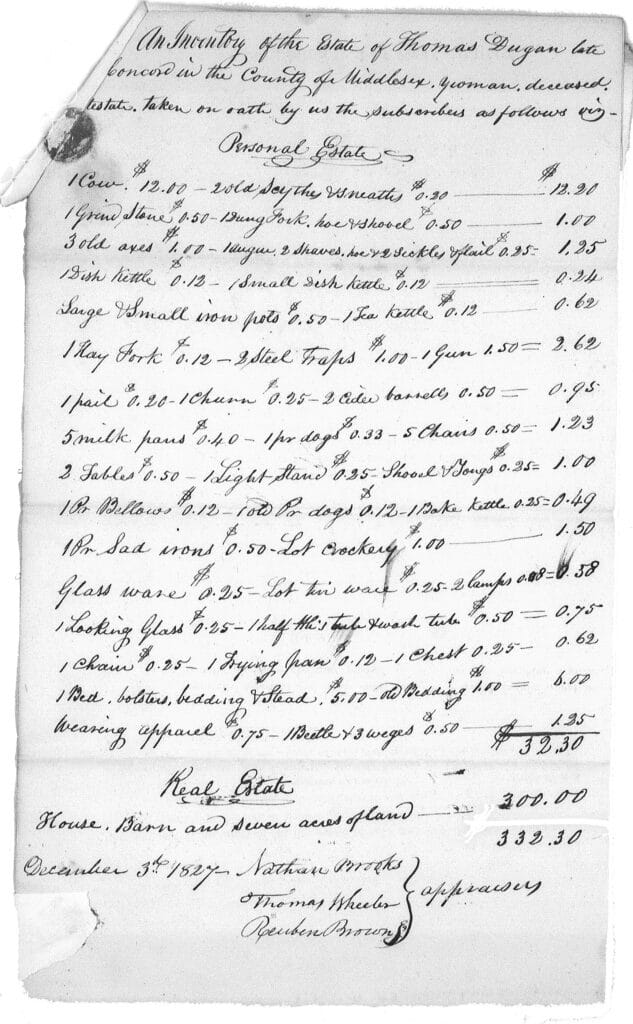 An Inventory of the Estate of Thomas Dugan late
Concord in the County of Middlesex, yeoman, deceased,
testate, taken on oath by us the subscribers as follows viz-
Personal Estate
1 Cow. $12.00 - 2 old Scythes & sneaths $0.20 — $12.20
1 Grind Stone $0.50 - 1 Dung Fork, hoe & shovel $0.50 — 1.00
3 old axes $1.00 - 1 augur, 2 Shaves, hoe & 2 Sickles & flail $0.25 = 1.25
1 Dish Kettle $0.12 - 1 Small Dish Kettle $0.12 = 0.24
Large & Small iron pots $0.50 - 1 Tea Kettle $0.12 — 0.62
1 Hay Fork $0.12 - 2 Steel Traps $1.00 - 1 Gun 1.50 = 2.62
1 pail $0.20 - 1 Churn $0.25 - 2 Cider barrells 0.50 = 0.95
5 milk pans $0.40 - 1 pr dogs $0.33 - 5 Chairs 0.50 = 1.23
2 Tables $0.50 - 1 Light Stand $0.25 - Shovel & Tongs $0.25 = 1.00
1 Pr Bellows $0.12 - 1 old Pr dogs $0.12 - 1 Bake Kettle 0.25 = 0.49
1 Pr Sad irons $0.50 - Lot Crockery $1.00 — 1.50
Glass ware $0.25 - Lot tin ware $0.25 - 2 lamps 0.08 = 0.58
1 Looking Glass $0.25 - 1 half tub & wash tub $0.50 = 0.75
1 Chain $0.25 - 1 Frying pan $0.12 - 1 Chest 0.25 - 0.62
1 Bed, bolsters, bedding & Stead, $5.00 - old Bedding $1.00 = 6.00
Wearing apparel $0.75 - 1 Beetle & 3 weges $0.50 — 1.25
$32.30
Real Estate
House, Barn and seven acres of land — 300.00
332.30
December 3d 1827 - Nathan Brooks
Thomas Wheeler } appraisers
Reuben Brown